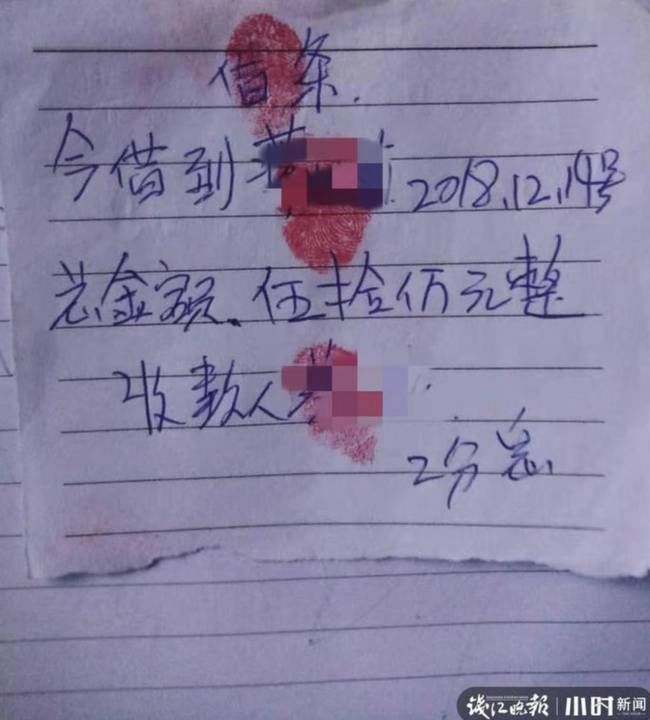 借条.
今借到 2018.12.14号
总金额.伍拾万元整
收款人
2分息
钱江晚报 小时新闻